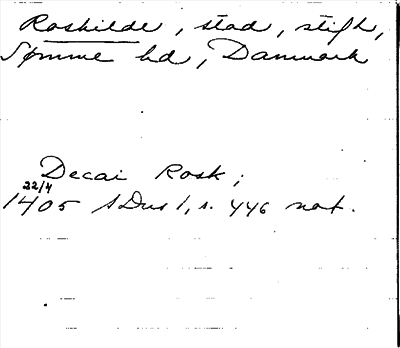 Roskilde, stad, stift,
Sømme hd, Danmark
Decai Rosk;
22/4
1405 SDns 1, s. 446 not.